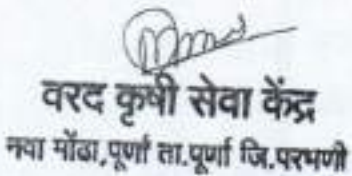 वरद कृषी सेवा केंद्र
नवा मोंढा,पूर्णा ता.पूर्णा जि.परभणी